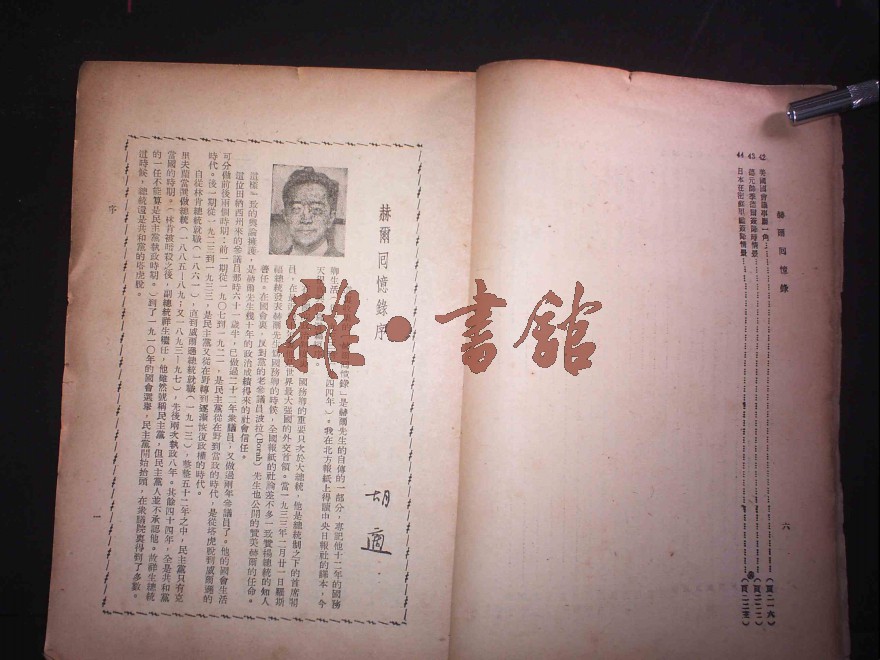 赫爾回憶錄
六
42 美國國會議事廳一角
43
44 日本在密蘇里艦簽降情景
赫爾回憶錄序
胡適
回憶錄」是赫爾先生的自傳的一部分，專記他十二年的國務
卿生活
四四年）。我在北方報紙上得讀中央日報社的譯本，今
天
國務卿的重要只次於大總統，他是總統制之下的首席閣
員，在
世界最大強國的外交首領。當一九三三年二月廿一日羅斯
福總統發表赫爾先生做國務卿的時候，全國報紙的社論差不多一致贊揚總統的知人
善任。在國會裏，反對黨的老參議員波拉(Borah)先生也公開的贊美赫爾的任命。
這樣一致的輿論擁護，是赫爾先生幾十年的政治成績得來的社會信任。
這位田納西州來的參議員那時六十一歲半，已做過二十二年衆議員，又做過兩年參議員了。他的國會生活
可分做前後兩個時期：前一期從一九〇七到一九二一，是民主黨從在野到當政的時代，是從塔虎脫到威爾遜的
時代。後一期從一九二三到一九三三，是民主黨又從在野轉到逐漸恢復政權的時代。
自從林肯總統就職（一八六一），直到威爾遜總統就職（一九一三），整整五十二年之中，民主黨只有克
里夫蘭當選做總統（一八八五—八九；又一八九三—九七），先後兩次執政八年。其餘四十四年，全是共和黨
當國的時期。（林肯被暗殺之後，副總統祥生繼任，他雖然號稱民主黨，但民主黨人並不承認他。故祥生總統
的一任不能算是民主黨執政時期。）到了一九一〇年的國會選舉，民主黨開始抬頭，在衆議院裏得到了多數。
這時候，總統還是共和黨的塔虎脫。
序
一
雜·書館